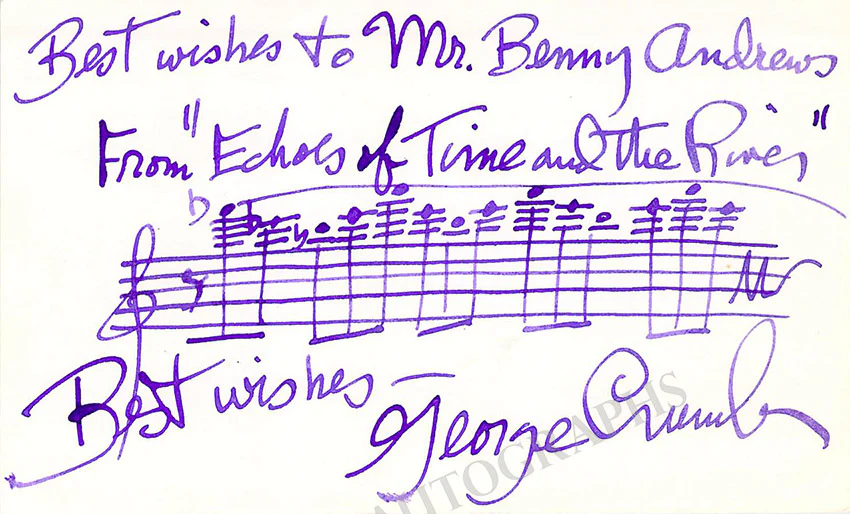 Best wishes to Mr. Benny Andrews
From "Echoes of Time and the River"
Best wishes —
George Crumb
AUTOGRAPHS